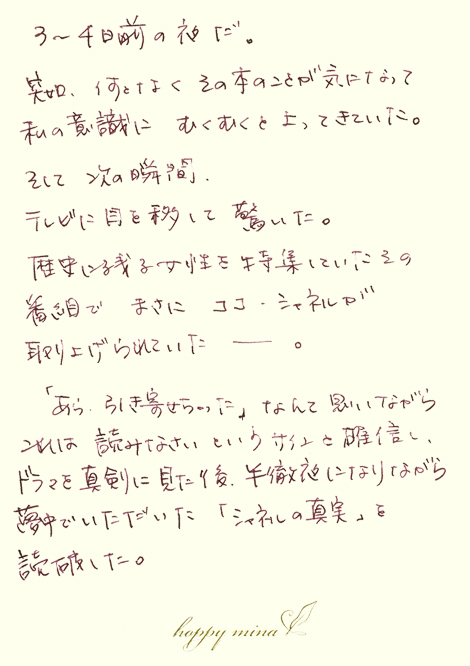 3〜4日前の夜だ。
突如、何となく その本のことが気になって
私の意識に むくむくと上ってきていた。
そして 次の瞬間、
テレビに目を移して 驚いた。
歴史に残る女性を特集していたその
番組で まさに ココ・シャネルが
取り上げられていた ── 。
「あら、引き寄せちゃった」なんて思いながら
これは 読みなさいというサインと確信し、
ドラマを真剣に見た後、半徹夜になりながら
夢中でいただいた「シャネルの真実」を
読破した。
happy mina